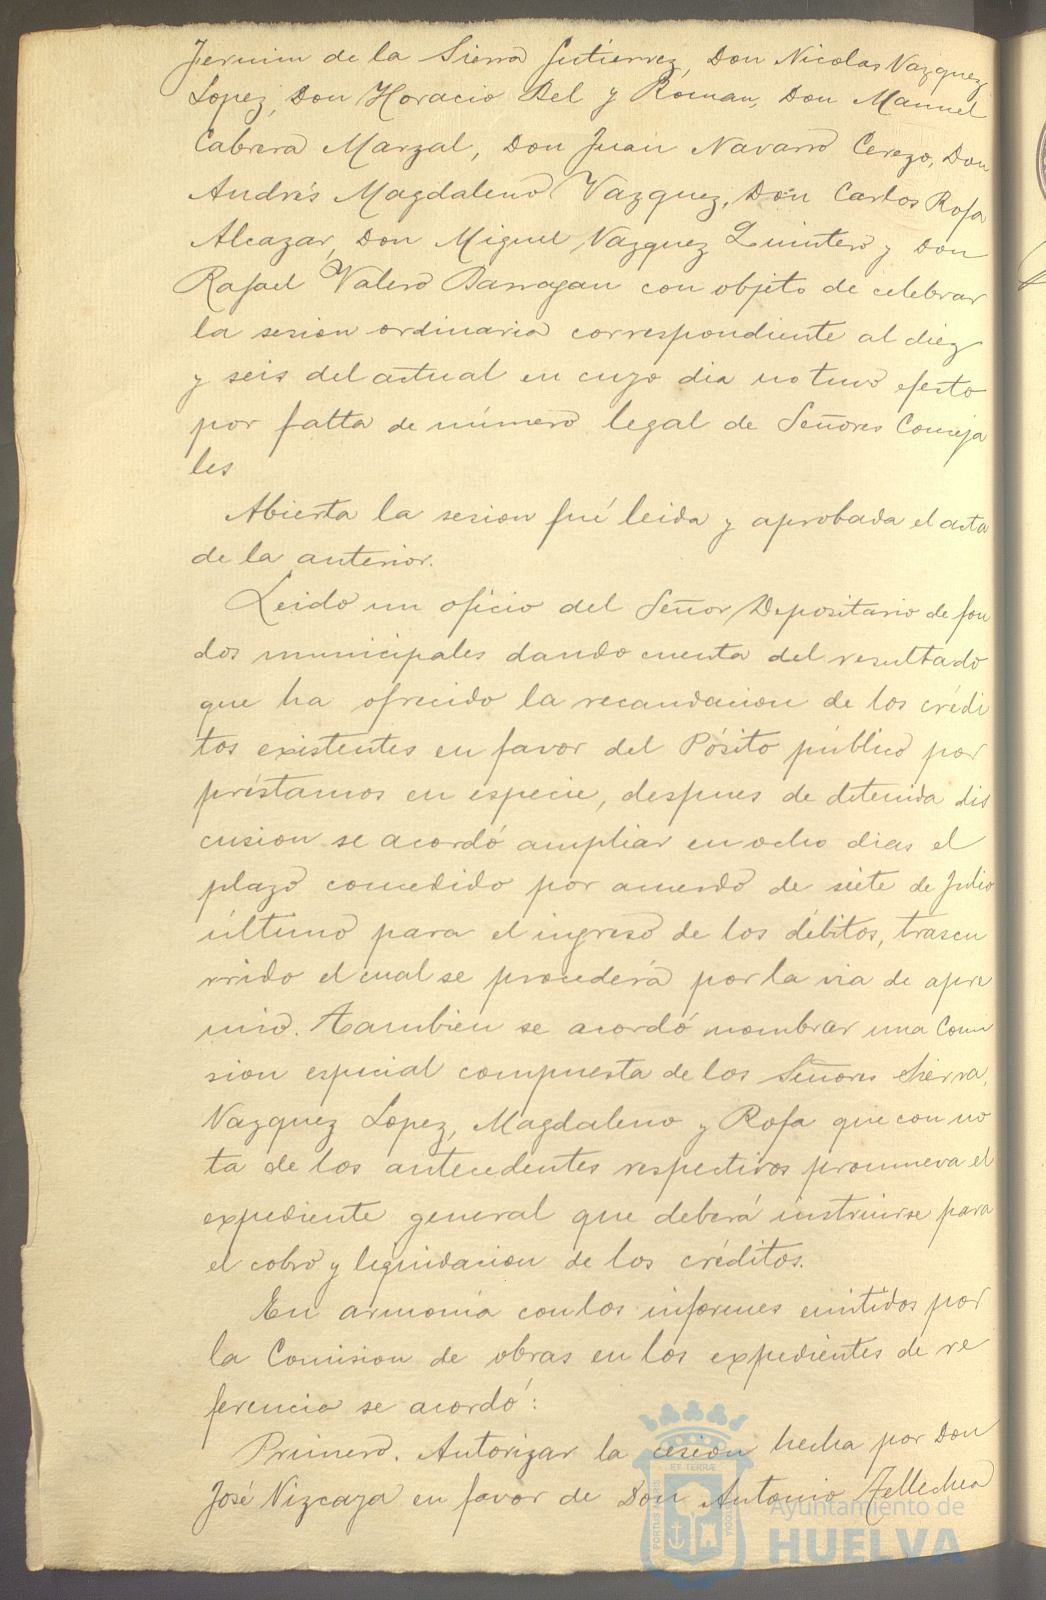 Fermin de la Sierra Gutierrez, Don Nicolas Vazquez
Lopez, Don Horacio Bel y Roman, Don Manuel
Cabrera Marzal, Don Juan Navarro Cerezo, Don
Andrés Magdaleno Vazquez, Don Carlos Rofa
Alcazar, Don Miguel Vazquez Quintero y Don
Rafael Valero Barragan con objeto de celebrar
la sesion ordinaria correspondiente al diez
y seis del actual en cuyo dia no tuvo efecto
por falta de número legal de Señores Conceja
les
Abierta la sesion fué leida y aprobada el acta
de la anterior.
Leido un oficio del Señor Depositario de fon
dos municipales dando cuenta del resultado
que ha ofrecido la recaudacion de los crédi
tos existentes en favor del Pósito público por
préstamos en especie, despues de detenida dis
cusion se acordó ampliar en ocho dias el
plazo concedido por acuerdo de siete de Julio
último para el ingreso de los débitos, trascu
rrido el cual se procederá por la via de apre
mio. Tambien se acordó nombrar una Comi
sion especial compuesta de los Señores Sierra,
Vazquez Lopez, Magdaleno y Rofa que con no
ta de los antecedentes respectivos promueva el
expediente general que deberá instruirse para
el cobro y liquidacion de los créditos.
En armonia con los informes emitidos por
la Comision de obras en los expedientes de re
ferencia se acordó:
Primero. Autorizar la cesion hecha por Don
José Vizcaya en favor de Don Antonio Tellechea
PORTUS MARIS
ET TERRÆ
CUSTODIA
Ayuntamiento de
HUELVA